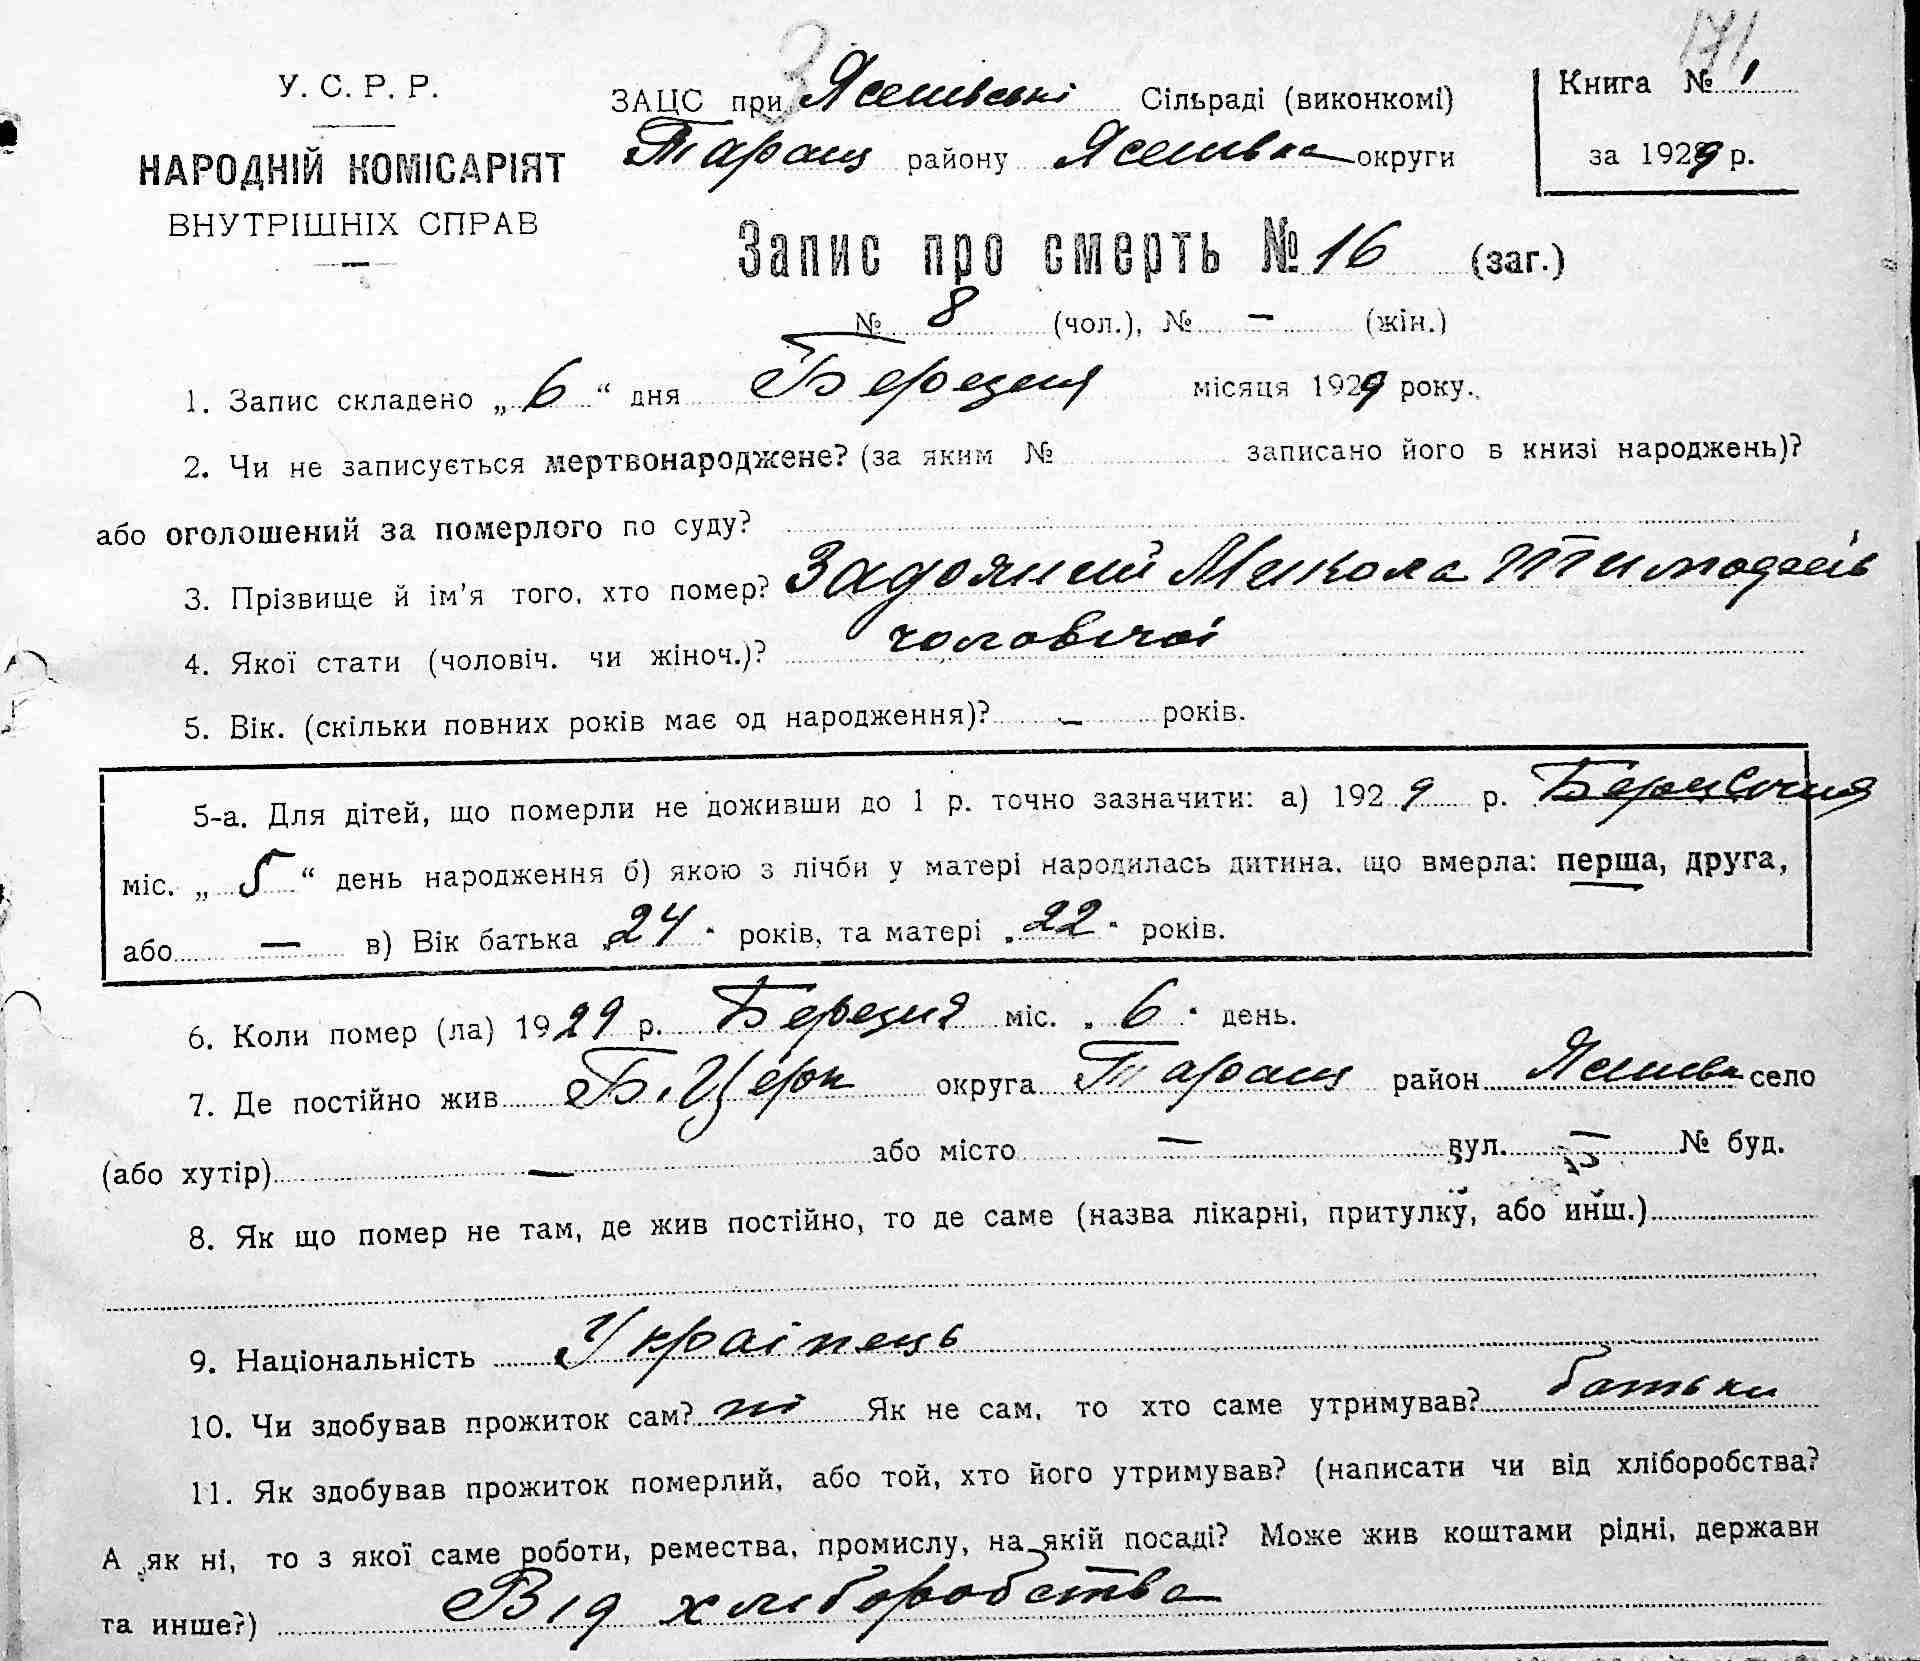 171
3
У. С. Р. Р.
НАРОДНІЙ КОМІСАРІЯТ
ВНУТРІШНІХ СПРАВ
ЗАЦС при Ясенівські Сільраді (виконкомі)
Таращ району Ясенівка округи
Книга № 1
за 1929 р.
Запис про смерть № 16 (заг.)
№ 8 (чол.), № — (жін.)
1. Запис складено „ 6 “ дня Березня місяця 1929 року.
2. Чи не записується мертвонароджене? (за яким № записано його в книзі народжень)?
або оголошений за померлого по суду?
3. Прізвище й ім'я того, хто помер? Задояний Микола Тимофеїв
4. Якої стати (чоловіч. чи жіноч.)? чоловічої
5. Вік. (скільки повних років має од народження)? — років.
5-а. Для дітей, що померли не доживши до 1 р. точно зазначити: а) 1929 р.
міс. „ 5 “ день народження б) якою з лічби у матері народилась дитина, що вмерла: перша, друга,
або — в) Вік батька „24“ років, та матері „22“ років.
6. Коли помер (ла) 1929 р. Березня міс. „ 6 “ день.
7. Де постійно жив Б. Церк округа Таращ район Ясенівка село
(або хутір) — або місто — вул. — № буд.
8. Як що помер не там, де жив постійно, то де саме (назва лікарні, притулку, або инш.)
9. Національність Українець
10. Чи здобував прожиток сам? ні Як не сам, то хто саме утримував? батьки
11. Як здобував прожиток померлий, або той, хто його утримував? (написати чи від хліборобства?
А як ні, то з якої саме роботи, ремества, промислу, на якій посаді? Може жив коштами рідні, держави
та инше?) Від хліборобства